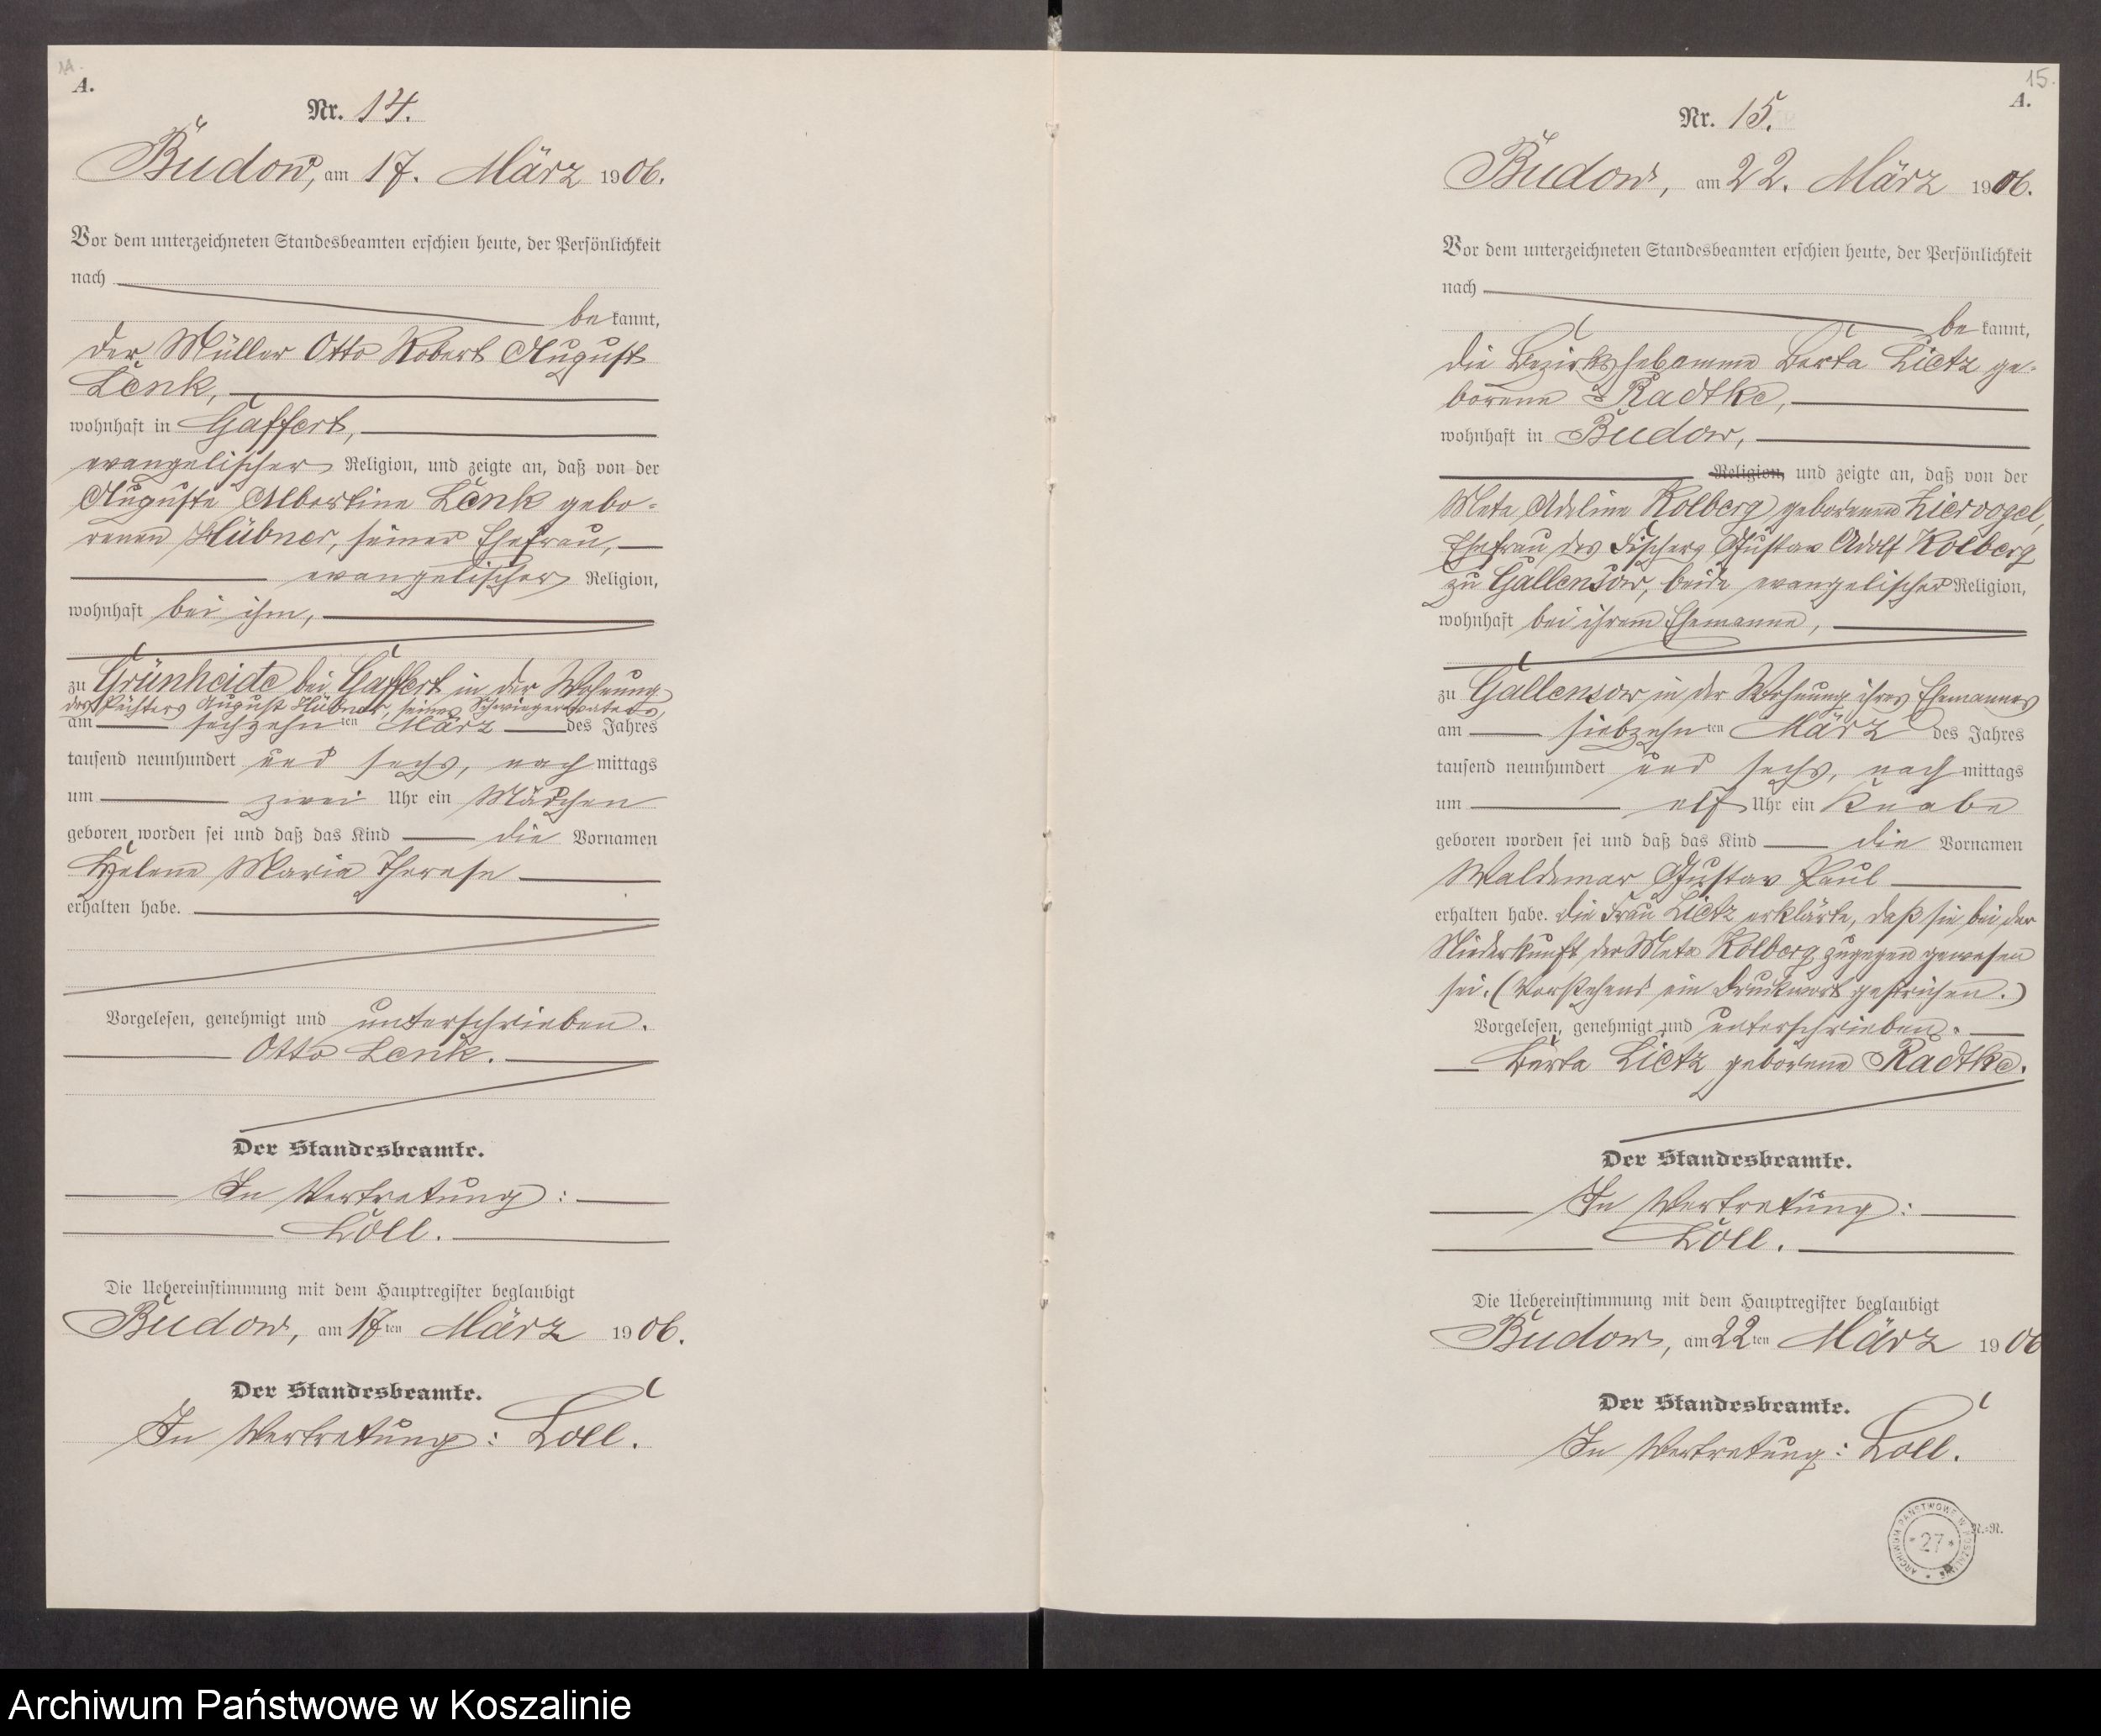 14.
A.
Nr. 14.
Budow, am 17. März 1906.
Vor dem unterzeichneten Standesbeamten erschien heute, der Persönlichkeit
nach
bekannt,
der Müller Otto Robert August
Lenk,
wohnhaft in Gaffert,
evangelischer Religion, und zeigte an, daß von der
Auguste Albertine Lenk gebo-
renen Hübner, seiner Ehefrau,
evangelischer Religion,
wohnhaft bei ihm,
zu Grünheide bei Gaffert in der Wohnung
des Pächters August Hübner, seines Schwiegervaters,
am sechzehnten März des Jahres
tausend neunhundert und sechs, nachmittags
um zwei Uhr ein Mädchen
geboren worden sei und daß das Kind die Vornamen
Helene Marie Therese
erhalten habe.
Vorgelesen, genehmigt und unterschrieben.
Otto Lenk.
Der Standesbeamte.
In Vertretung:
Loll.
Die Uebereinstimmung mit dem Hauptregister beglaubigt
Budow, am 17ten März 1906.
Der Standesbeamte.
In Vertretung: Loll.
15.
A.
Nr. 15.
Budow, am 22. März 1906.
Vor dem unterzeichneten Standesbeamten erschien heute, der Persönlichkeit
nach
bekannt,
die Bezirkshebamme Berta Lietz ge-
borene Radtke,
wohnhaft in Budow,
Religion, und zeigte an, daß von der
Meta Adeline Kolberg geborenen Ziervogel,
Ehefrau des Fischers Gustav Adolf Kolberg
zu Gallensow, beide evangelischer Religion,
wohnhaft bei ihrem Ehemanne,
zu Gallensow in der Wohnung ihres Ehemannes
am siebzehnten März des Jahres
tausend neunhundert und sechs, nachmittags
um elf Uhr ein Knabe
geboren worden sei und daß das Kind die Vornamen
Waldemar Gustav Paul
erhalten habe. Die Frau Lietz erklärte, daß sie bei der
Niederkunft der Meta Kolberg zugegen gewesen
sei. (Vorstehend ein Druckwort gestrichen.)
Vorgelesen, genehmigt und unterschrieben.
Berta Lietz geborene Radtke.
Der Standesbeamte.
In Vertretung:
Loll.
Die Uebereinstimmung mit dem Hauptregister beglaubigt
Budow, am 22ten März 1906
Der Standesbeamte.
In Vertretung: Loll.
ARCHIWUM PAŃSTWOWE W KOSZALINIE
* 27 *
N.-N.
Archiwum Państwowe w Koszalinie